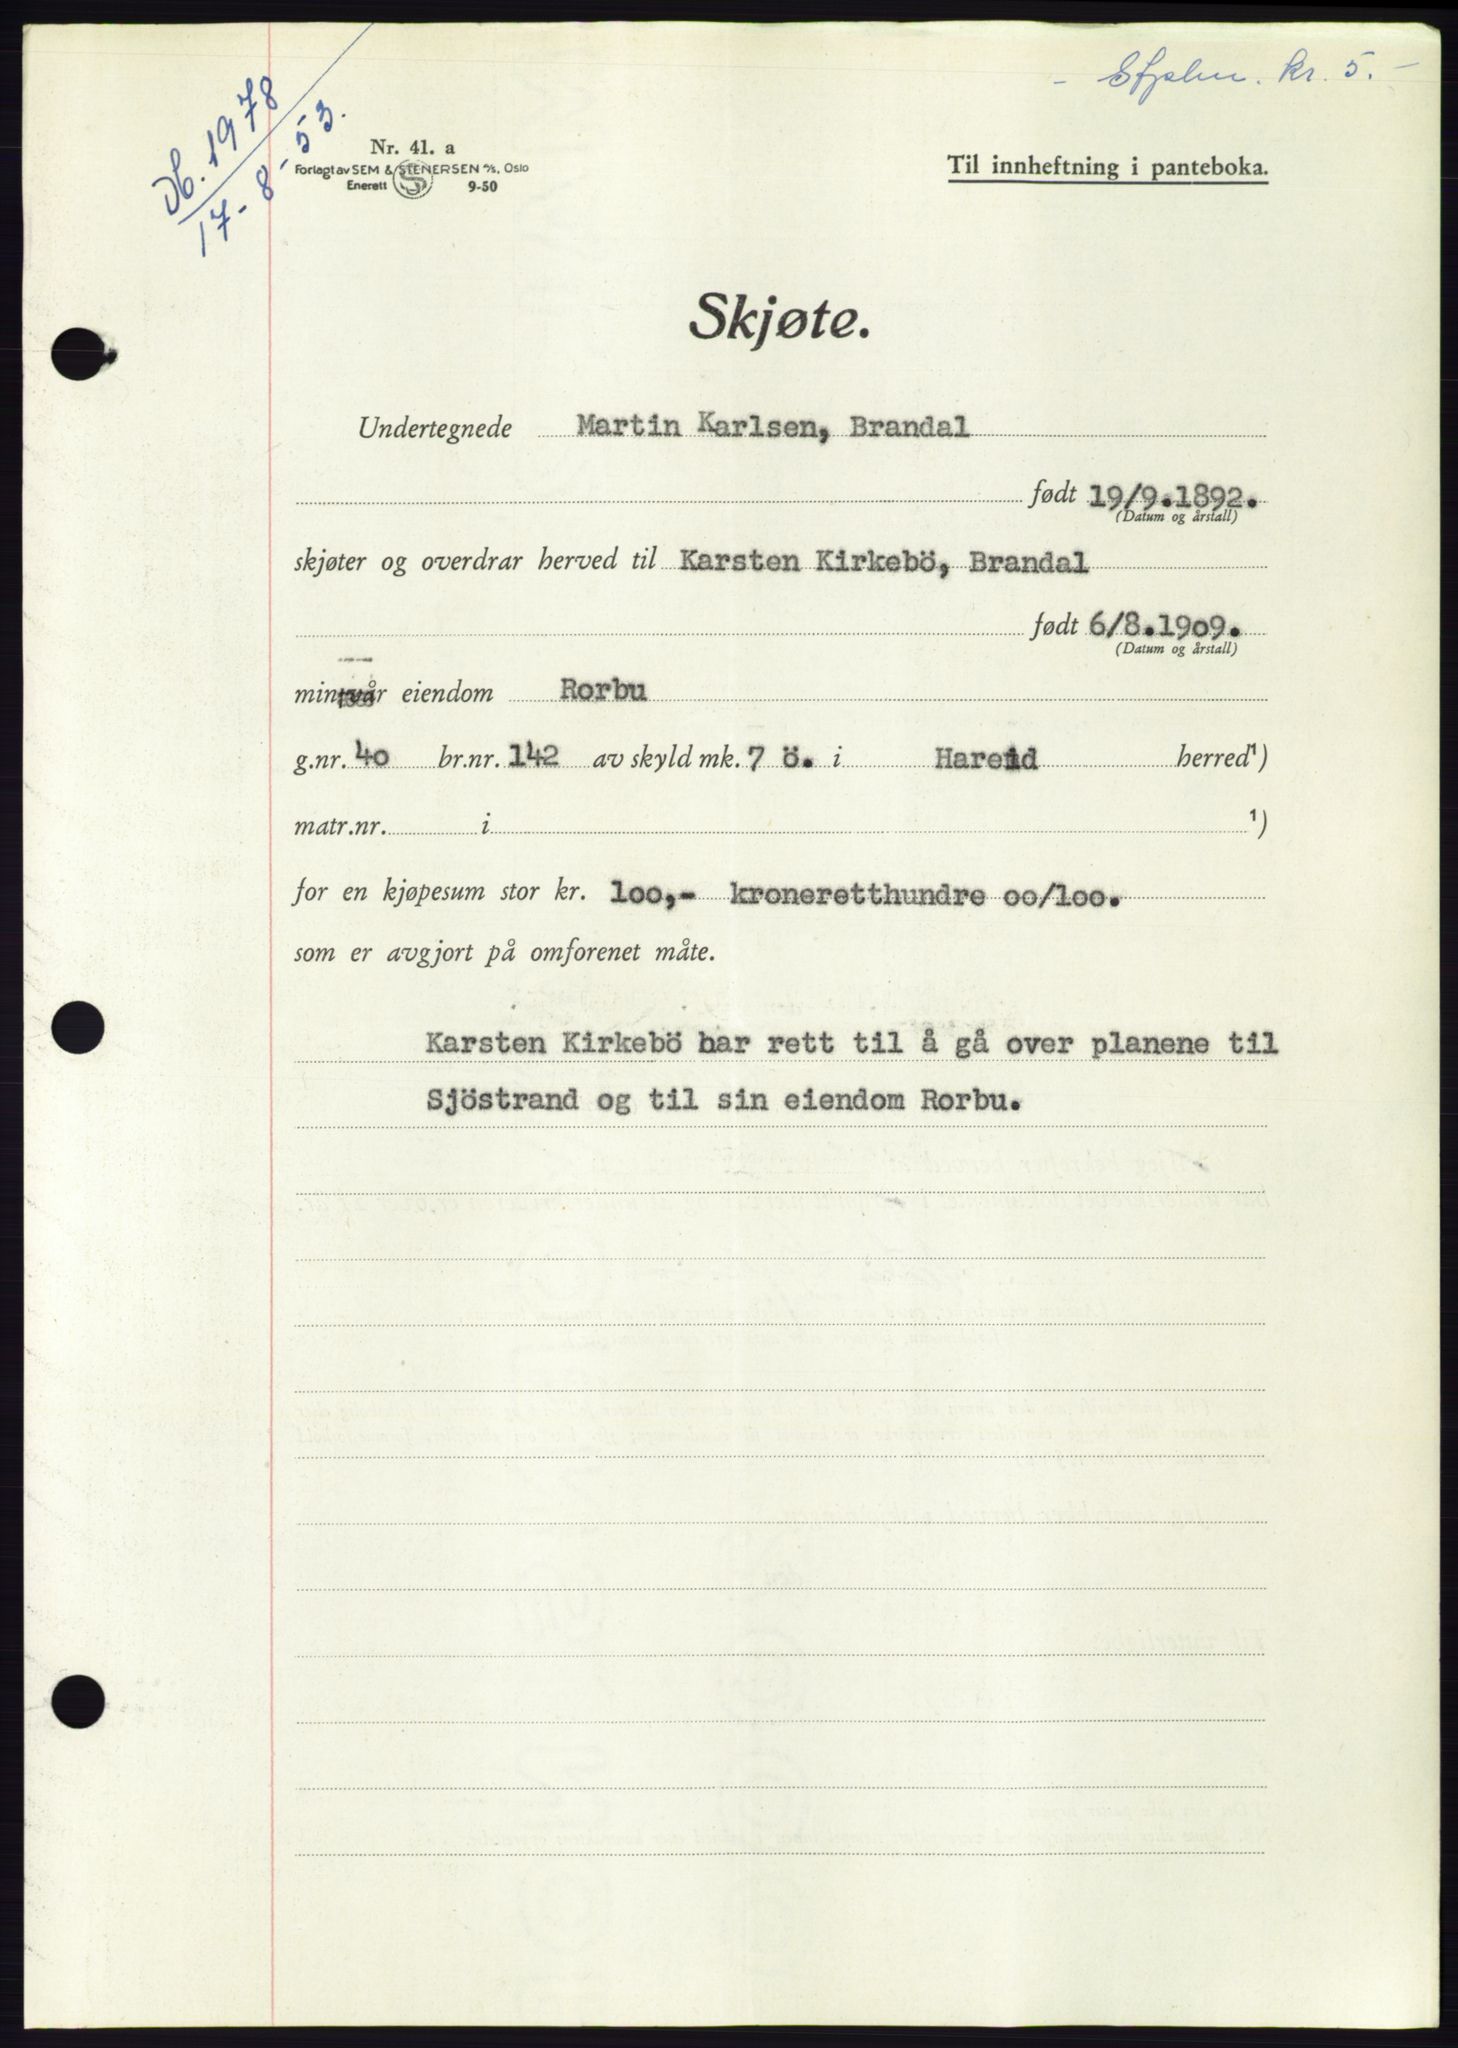 Db. 1978
17-8-53.
- Stplm. kr. 5.-
Nr. 41. a
Forlagt av SEM & STENERSEN A/S, Oslo
Enerett 9-50
Til innheftning i panteboka.
Skjøte.
Undertegnede Martin Karlsen, Brandal
født 19/9.1892.
(Datum og årstall)
skjøter og overdrar herved til Karsten Kirkebö, Brandal
født 6/8.1909.
(Datum og årstall)
min vår eiendom Rorbu
g.nr. 40 br.nr. 142 av skyld mk. 7 ö. i Hareid herred¹)
matr.nr. i ¹)
for en kjøpesum stor kr. 100,- kroneretthundre oo/loo.
som er avgjort på omforenet måte.
Karsten Kirkebö har rett til å gå over planene til
Sjöstrand og til sin eiendom Rorbu.